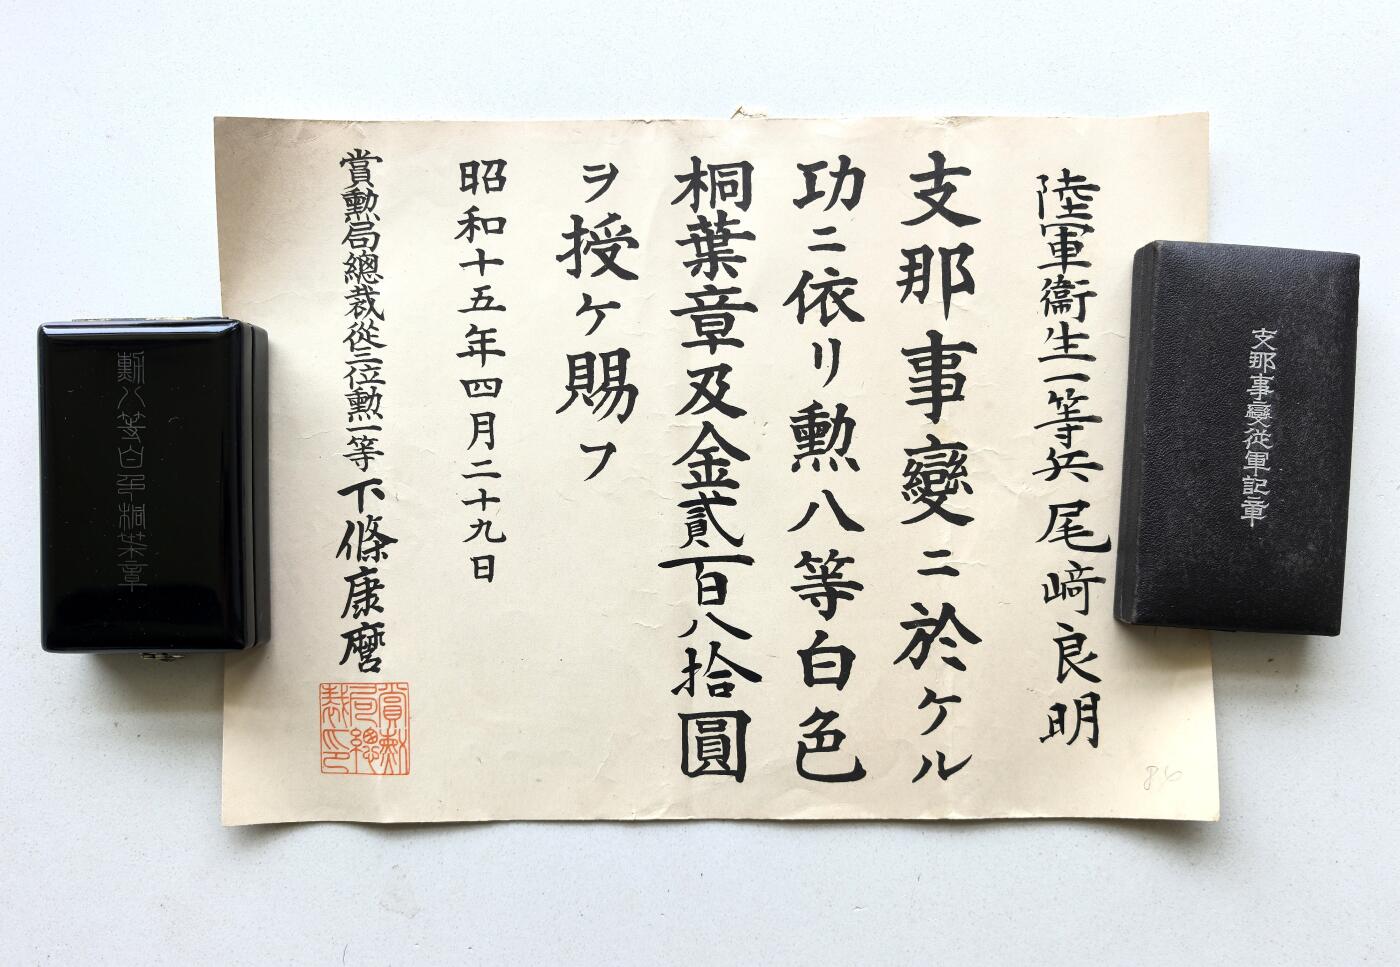 陸軍衞生一等兵尾﨑良明
支那事變ニ於ケル
功ニ依リ勲八等白色
桐葉章及金貳百八拾圓
ヲ授ケ賜フ
昭和十五年四月二十九日
賞勲局總裁從三位勲一等下條康麿
賞勲局總裁印
支那事變從軍記章
勲八等白色桐葉章